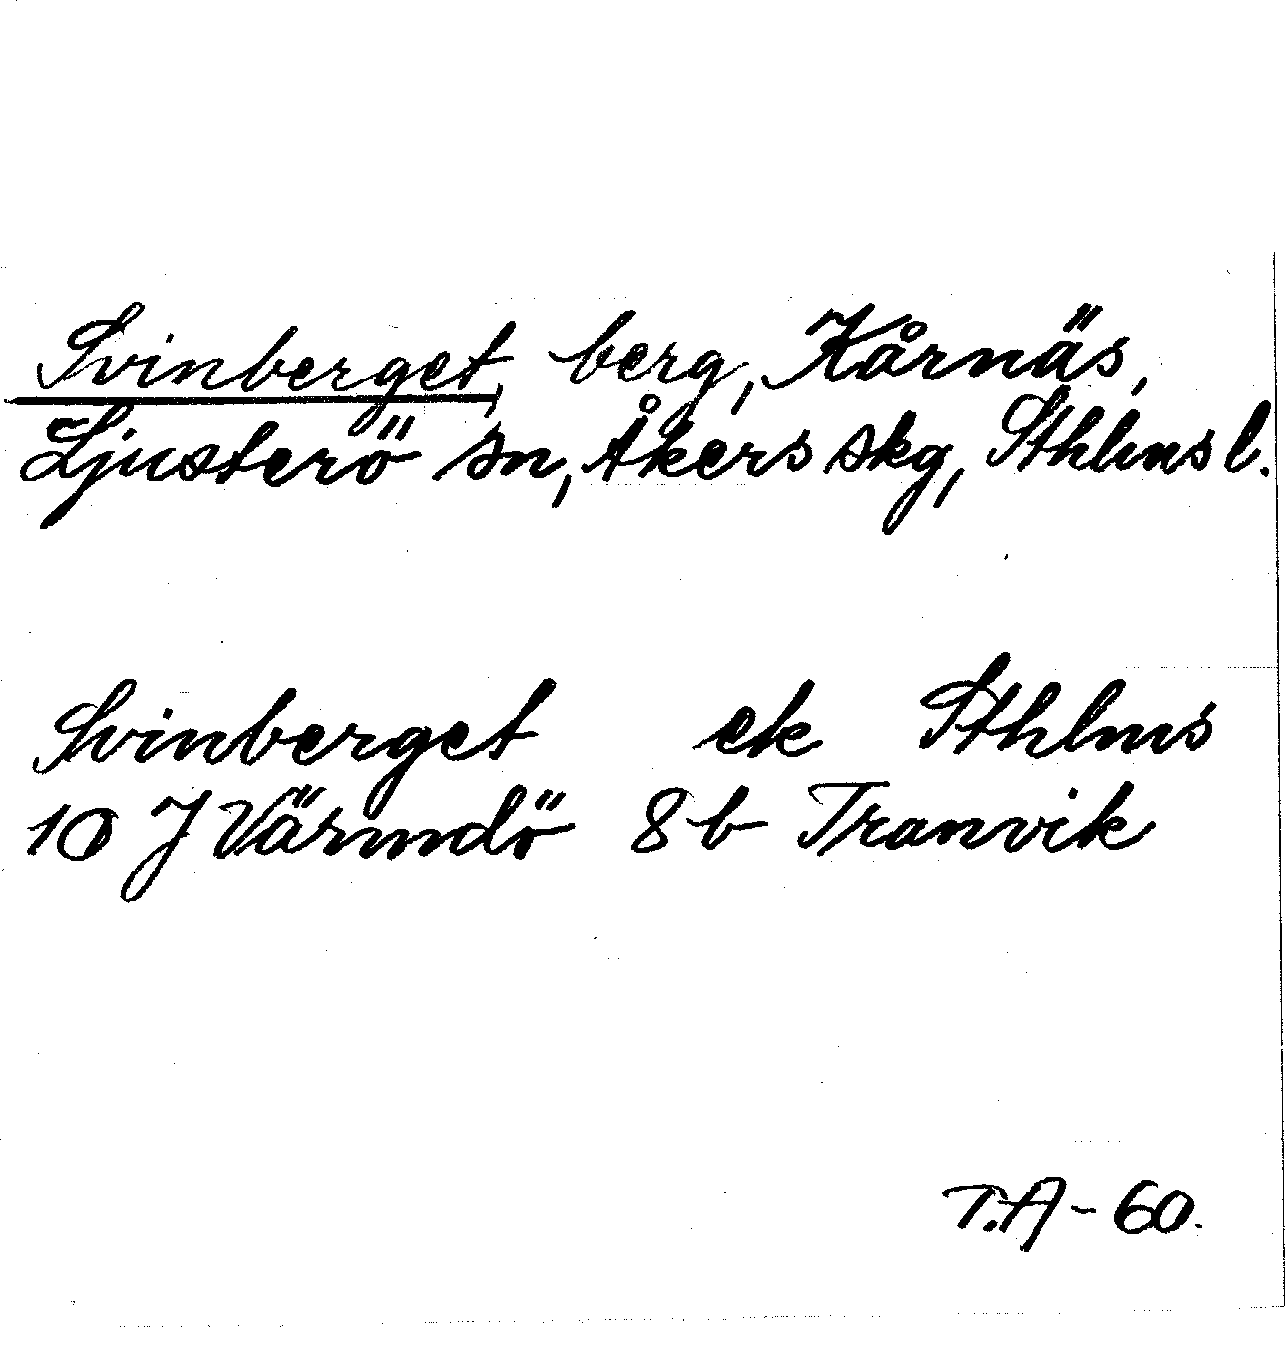 Svinberget, berg, Kårnäs,
Ljusterö sn, Åkers skg, Sthlms l.
Svinberget ek Sthlms
10 J Värmdö 8 b Tranvik
T.A - 60.